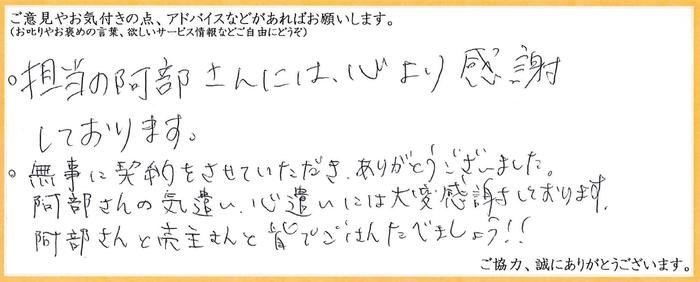 ご意見やお気付きの点、アドバイスなどがあればお願いします。
(お叱りやお褒めの言葉、欲しいサービス情報などご自由にどうぞ)
○担当の阿部さんには、心より感謝
しております。
○無事に契約をさせていただき、ありがとうございました。
阿部さんの気遣い、心遣いには大変感謝をしております。
阿部さんと売主さんと皆でごはんたべましょう!!
ご協力、誠にありがとうございます。